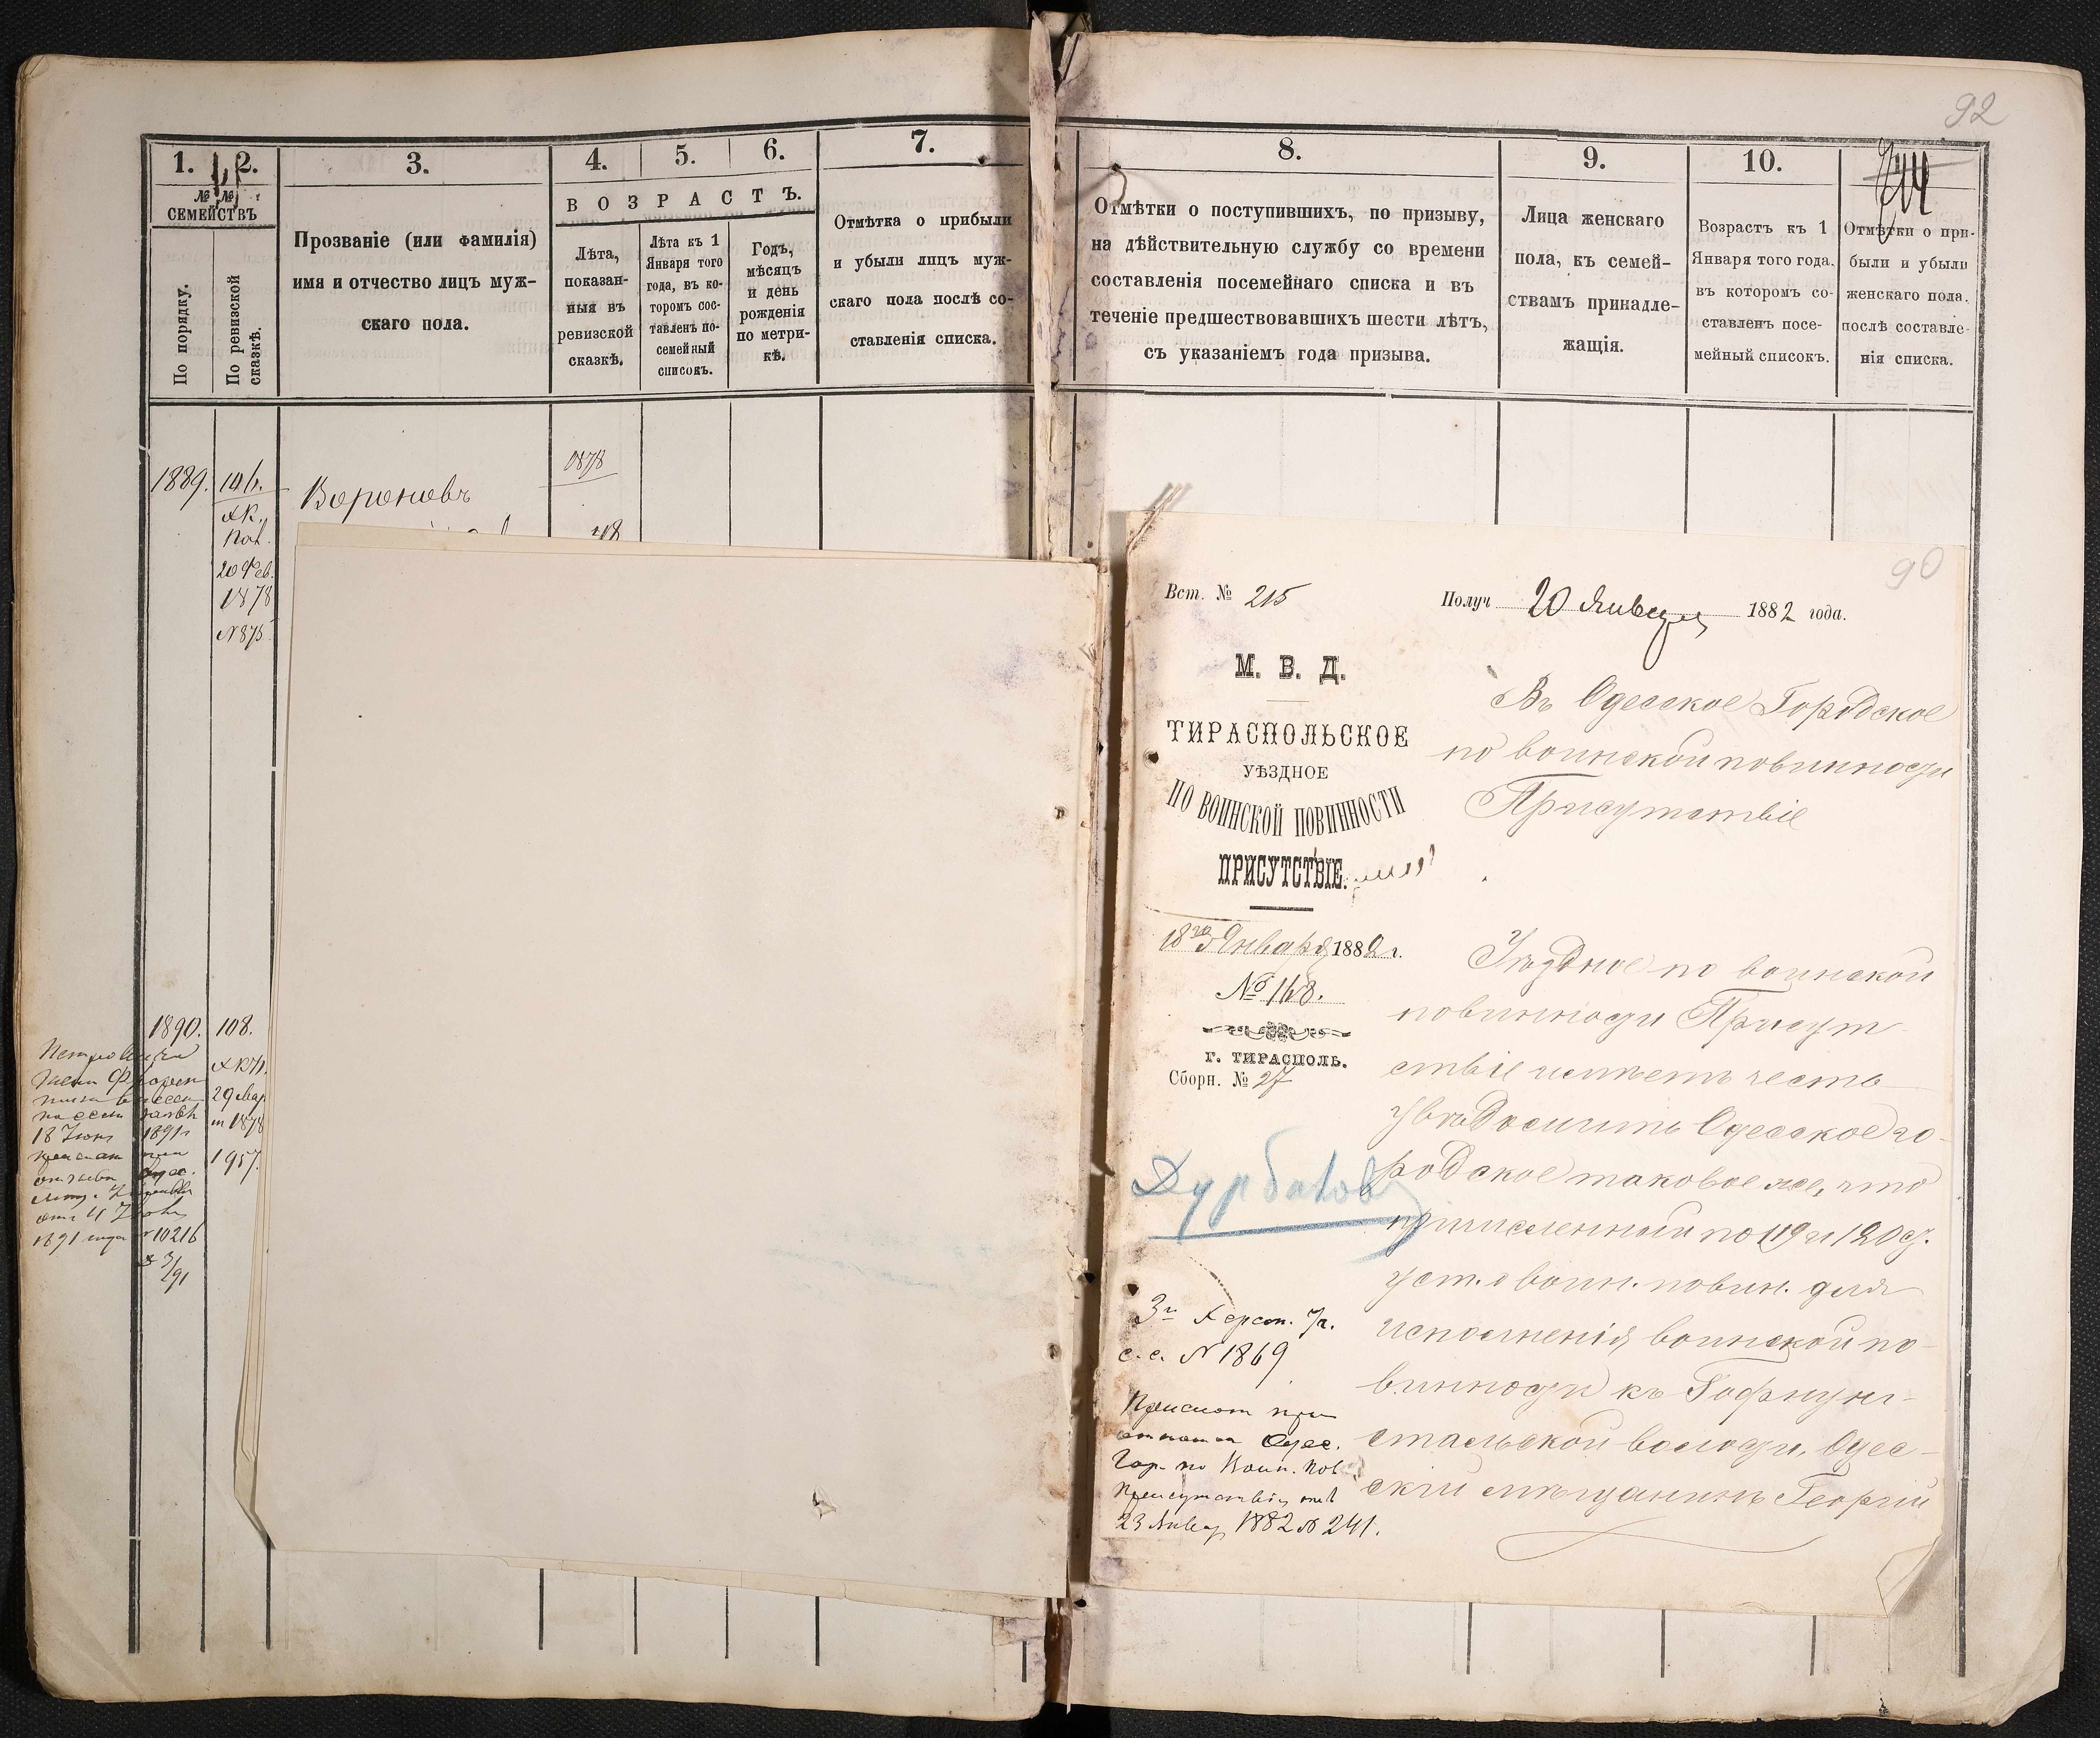 92
1.
2.
№ №
СЕМЕЙСТВЪ
По порядку.
По ревизской
сказкѣ.
3.
Прозваніе (или фамилія)
имя и отчество лицъ муж-
скаго пола.
4.
5.
6.
ВОЗРАСТЪ.
Лѣта,
показан-
ныя въ
ревизской
сказкѣ.
Лѣта къ 1
Января того
года, въ ко-
торомъ сос-
тавленъ по-
семейный
списокъ.
Годъ,
мѣсяцъ
и день
рожденія
по метри-
кѣ.
7.
Отмѣтка о прибыли
и убыли лицъ муж-
скаго пола послѣ со-
ставленія списка.
8.
Отмѣтки о поступившихъ, по призыву,
на дѣйствительную службу со времени
составленія посемейнаго списка и въ
теченіе предшествовавшихъ шести лѣтъ,
съ указаніемъ года призыва.
9.
Лица женскаго
пола, къ семей-
ствамъ принадле-
жащія.
10.
Возрастъ къ 1
Января того года,
въ которомъ со-
ставленъ посе-
мейный списокъ.
Отмѣтки о при-
были и убыли
женскаго пола,
послѣ составле-
нія списка.
1889.
146.
20 Фев.
1878
№ 875
Вороновъ
1878
48
1890.
108.
1957.
18 Іюня 1891
1891 года № 10216
90
Вст. № 215
Получ 20 Января 1882 года.
М. В. Д.
ТИРАСПОЛЬСКОЕ
УѢЗДНОЕ
ПО ВОИНСКОЙ ПОВИННОСТИ
ПРИСУТСТВІЕ.
18го Января 1882 г.
№ 168.
г. ТИРАСПОЛЬ.
Сборн. № 27
Въ Одесское Городское
по воинской повинности
Присутствіе
Уѣздное по воинской
повинности Присут
ствіе имѣетъ честь
увѣдомить Одесское го-
родское таковое же, что
причисленный по 119 и 120 ст.
уст. о воин. повин. для
исполненія воинской по-
винности къ Гофнунг-
стальской волости, Одес-
скій мѣщанинъ Георгій
Дурбатовъ
с. с. № 1869
Одес.
Гор. по Воин. Пов.
Присутствія отъ
23 Январ 1882 № 241.